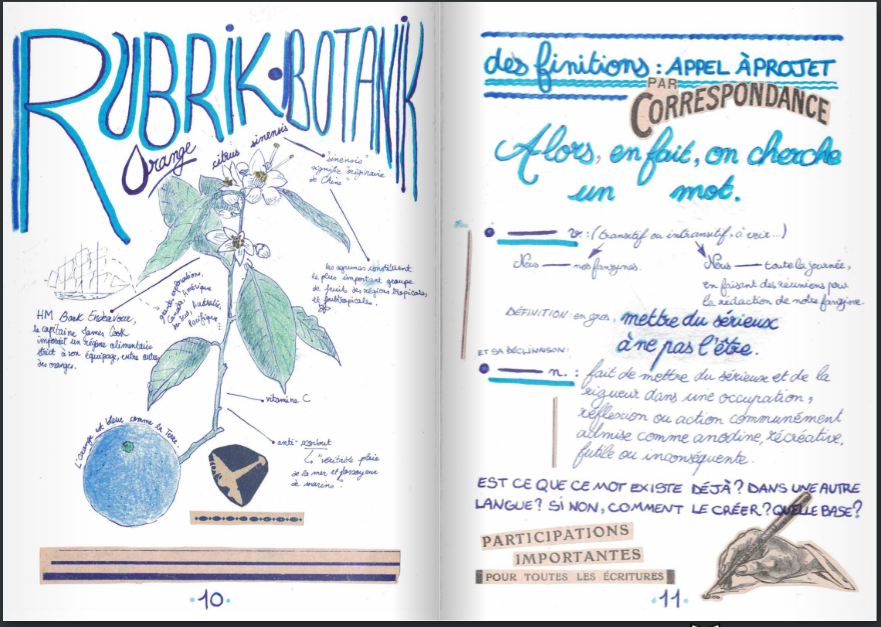 RUBRIK·BOTANIK
Orange
citrus sinensis
"sinensis"
signifie "originaire
de Chine"
les agrumes constituent
le plus important groupe
de fruits des régions tropicales
et subtropicales.
grandes explorations,
Canada, Amérique
du Sud, Australie,
Pacifique
HM Bark Endeavour,
le capitaine James Cook
imposait un régime alimentaire
strict à son équipage, entre autres
des oranges.
vitamine C
anti-scorbut
"véritable plaie
de la mer et fossoyeur
de marins"
L'orange est bleue comme la Terre.
10
des finitions : APPEL À PROJET
PAR
CORRESPONDANCE
Alors, en fait, on cherche
un mot.
v. : (transitif ou intransitif, à voir...)
Nous nos fanzines.
Nous toute la journée,
en faisant des réunions pour
la rédaction de notre fanzine.
DÉFINITION: en gros, mettre du sérieux
à ne pas l'être.
ET SA DÉCLINAISON:
n. : fait de mettre du sérieux et de la
rigueur dans une occupation,
réflexion ou action communément
admise comme anodine, récréative,
futile ou inconséquente.
EST CE QUE CE MOT EXISTE DÉJÀ? DANS UNE AUTRE
LANGUE? SI NON, COMMENT LE CRÉER? QUELLE BASE?
PARTICIPATIONS
IMPORTANTES
POUR TOUTES LES ÉCRITURES
11